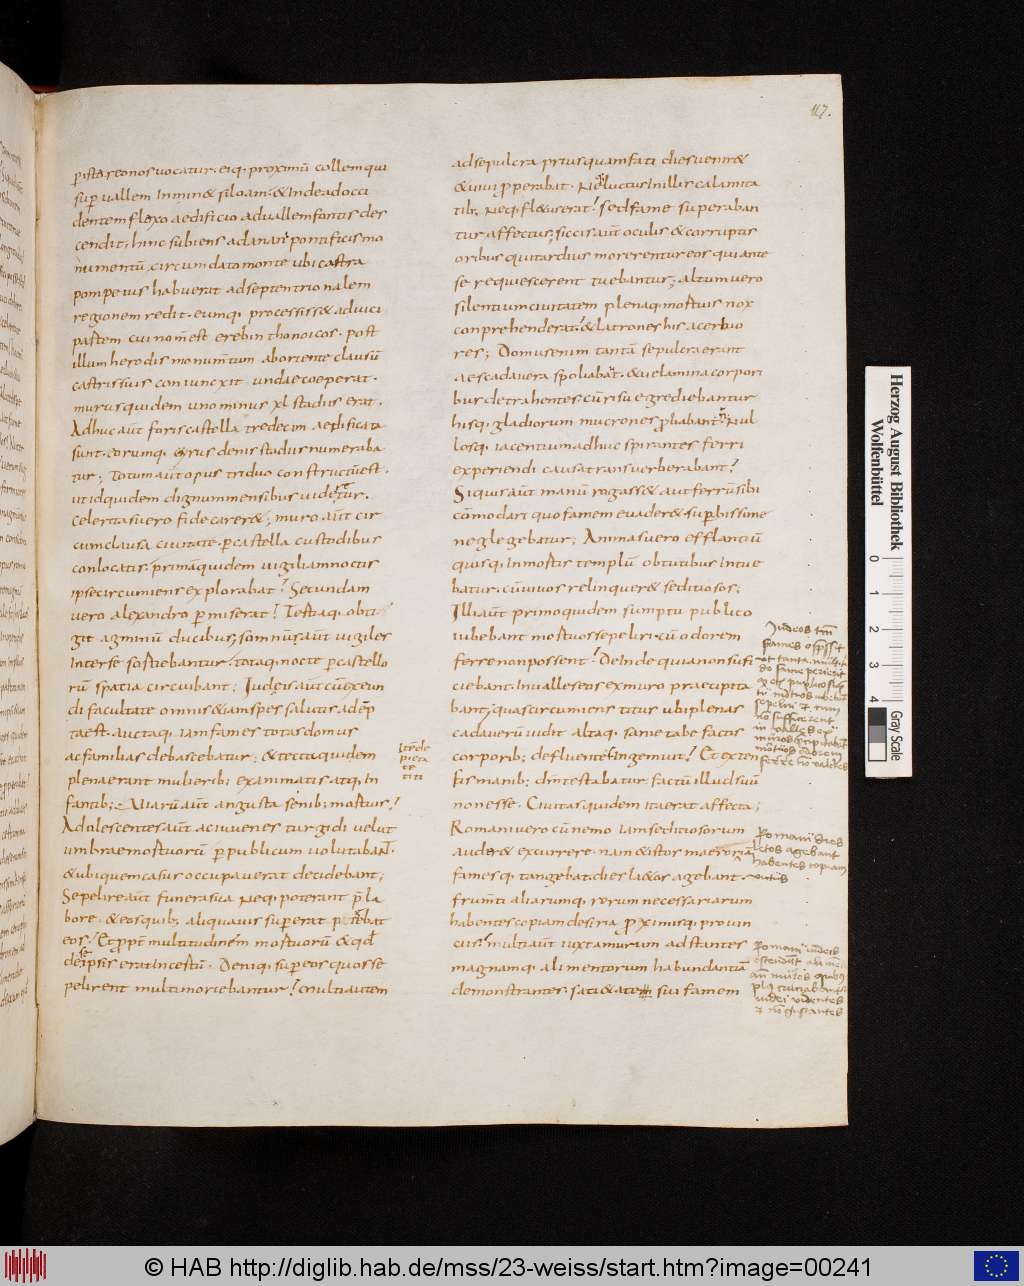 117.
peristereonos vocatur. eiq; proximū collemqui
sup vallem Inmin& siloam. & Indeadocci
dentem flexo aedificio advallemfontis des
cendit; hinc subiens adanani pontificis mo
numentū circumdatomonte ubicastra
pompeius habuerat adseptentrionalem
regionem redit. eumq; processiss& aduici
pastem cui nomēst erebinthonoicos. post
illum herodis monumtum aboriente clausū
castrissuis coniuncxit undae coeperat.
murusquidem uno minus xl stadiis erat.
Adhuc aūt foriscastella tredecim aedificata
sunt. eorumq; girus denis stadiis numeraba
tur; Totum aūt opus triduo constructūest.
ut idquidem dignummensibus uideretur.
celeritas uero fide carer&; muro aūt cir
cumclausa ciuitate. p castella custodibus
conlocatis. primāquidem uigiliamnoctis
ipsecircumiens explorabat! Secundam
uero alexandro p miserat! Tertiaq; obti
git agminū ducibus; somnūs aūt uigiles
Interse sortiebantur. totaq; nocte p castello
rū spatia circuibant; Iudeis aūt cū exeun
di facultate omnis & iamspes salutis adēp
taest. auctaq; iam fames totas domus
ac familias debascebatur; & tectaquidem
plenaerant mulierib; examinatis atq; In
fantib; Viarū aūt angusta senib; mortuis!
Adolescentes aūt ac iuuenes turgidi uelut
umbraemortuorū p publicum uolutabant.
& ubiquemcasus occupauerat decidebant;
Sepelire aūt funerasua Neq; poterant p la
bore. & eosquib; aliquauis superat pigebat
eos! Etppt multitudinem mortuorū & qd
deseipsis eratIncertū. Deniq; sup eos quos se
pelirent multi moriebantur! multi autem
adsepulcra priusquamfati dies uenir&
& uiui pperabat. Neq; luctus Inillis calamita
tib; Neq; fletus erat! sed fame superaban
tur affectus; siccis aūt oculis & corruptis
oribus quitardius morerentur eos qui ante
se requiescerent tuebantur; altum uero
silentium ciuitatem plenaq; mortuis nox
conprehenderat. & latrones his acerbio
res; Domus enim tantā sepulcra erant
aes cadauera spoliabāt. & uelamina corpori
bus detrahentes. cū risu egrediebantur
hisq; gladiorum mucrones pbabant. Nul
losq; iacentium adhuc spirantes ferri
experiendi causa transuerberabant!
Siquis aūt manū rogass& aut ferrū sibi
cōmodari quo famem euader& supbissime
neglegebatur; Animas uero efflantiū
quisq; Inmortis templū obtutibus Intue
batur. cū uiuos relinquer& seditiosos;
Illi aūt primo quidem sumptu publico
iubebant mortuos sepeliri. cū odorem
ferre non possent! DeInde quianon sufi
ciebant. Inualles eos exmuro praecipita
bant; quas circumiens titus ubi plenas
cadauerū uidit altaq; sanie tabe factis
corporib; defluente Ingemuit! Et exten
sis manib; dīm testabatur. factū illud suū
non esse. Ciuitas quidem ita erat affecta;
Romani uero cū nemo iam seditiosorum
auder& excurrere. nam & istos maeror
famesq; tangebat. dies la&os agebant.
frumti aliarumq; rerum necessariarum
habentes copiam desiria proximisq; prouin
ciis! multi aūt iuxtamurum adstantes
magnamq; alimentorum habundantiā
demonstrantes. sati&ate sui famem
Iudeos tm̄
fames
Romani
habentes copiam
Romani iudeis
© HAB http://diglib.hab.de/mss/23-weiss/start.htm?image=00241
Herzog August Bibliothek
Wolfenbüttel
0 1 2 3 4
Gray Scale